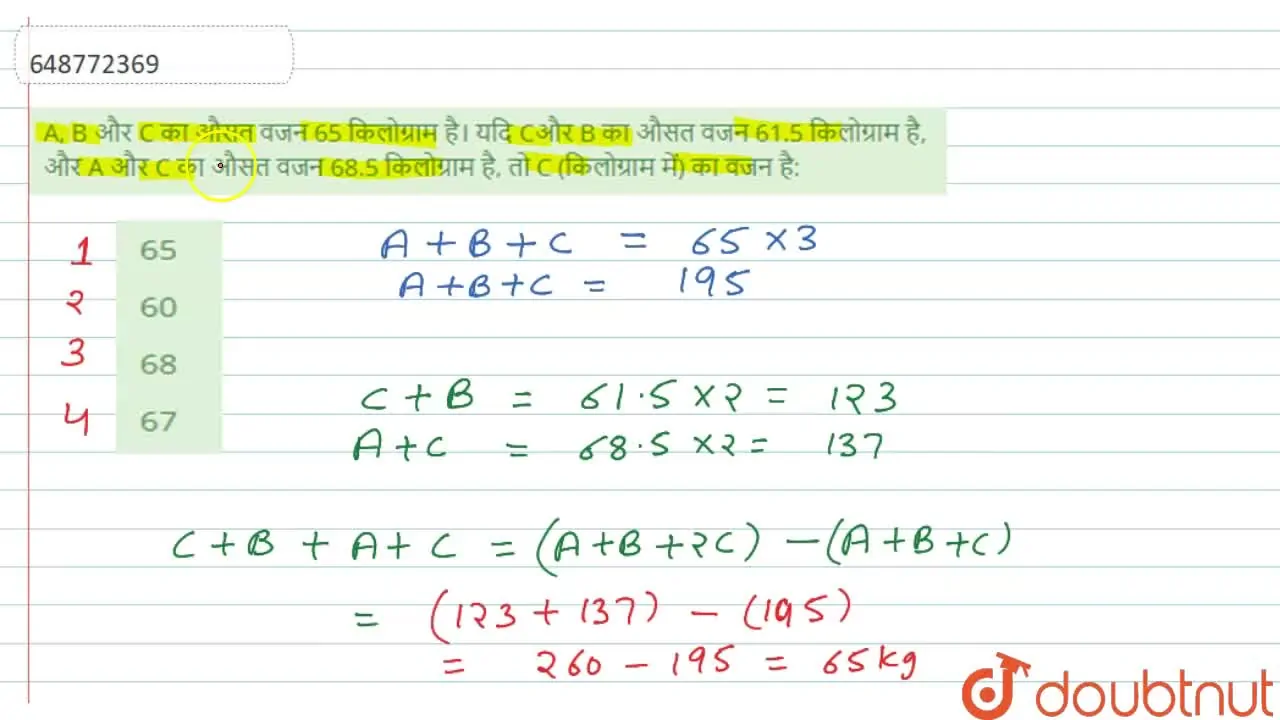 648772369
A, B और C का औसत वजन 65 किलोग्राम है। यदि C और B का औसत वजन 61.5 किलोग्राम है,
और A और C का औसत वजन 68.5 किलोग्राम है, तो C (किलोग्राम में) का वजन है:
1 65
2 60
3 68
4 67
A + B + C = 65 × 3
A + B + C = 195
C + B = 61.5 × 2 = 123
A + C = 68.5 × 2 = 137
C + B + A + C = (A + B + 2C) - (A + B + C)
= (123 + 137) - (195)
= 260 - 195 = 65 kg
doubtnut